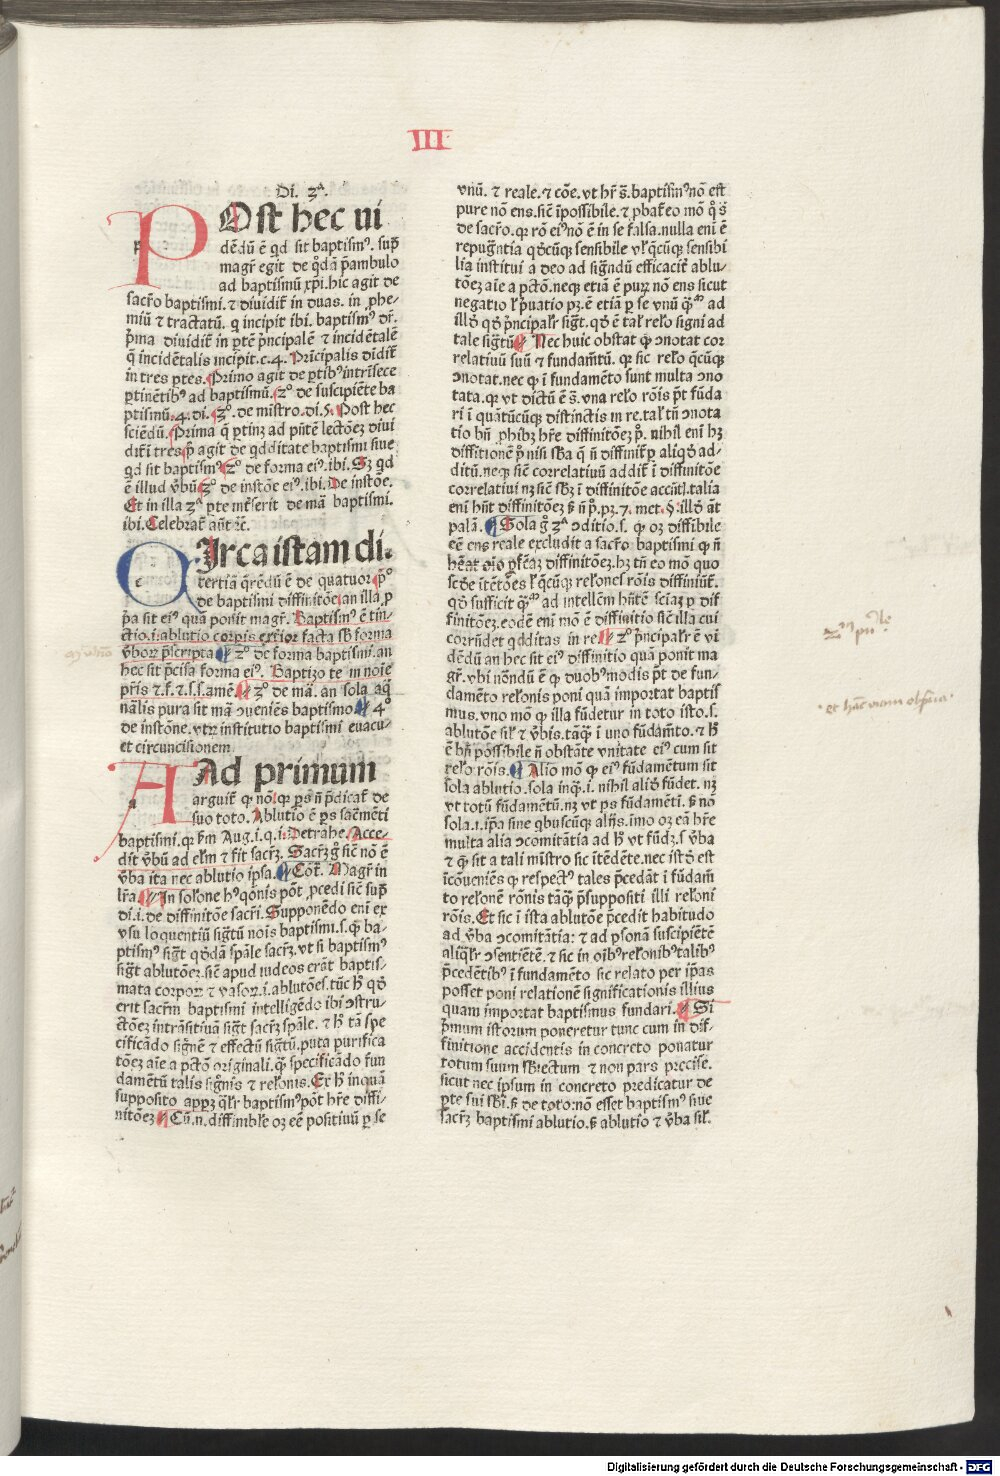 III
Di. ʒᵃ.
POst hec ui
dēdū ē qd sit baptismꝰ. sup̄
magr̄ egit de q̊dā p̄ambulo
ad baptismū xp̄i. hic agit de
sacr̄o baptismi. ⁊ diuidit̄ in duas. in ꝓhe-
miū ⁊ tractatū. q incipit ibi. baptismꝰ dr̄.
p̄ma diuidit̄ in ꝑtē p̄ncipalē ⁊ incidētalē
q̄ incidētalis incipit. c. 4. Principalis diuidit̄
in tres ꝑtes. Primo agit de ꝑtibꝰ intrīsece
ꝑtinētibꝰ ad baptismū. ꝫº de suscipiēte ba
ptismū. 4. di. ꝫº. de mīstro. di. 5. Post hec
sciēdū. Prima q̄ ꝑtinꝫ ad p̄ntē lectōeꝫ diui
dit̄ ī tres p̄ agit de qdditate baptismi siue
qd sit baptismꝰ ꝫº de forma eiꝰ. ibi. Sꝫ qd
ē illud v̄bū ꝫº de instōe eiꝰ. ibi. De instōe.
Et in illa ꝫᵃ ꝑte inẜerit de mā baptismi.
ibi. Celebrat̄ aūt ⁊c̄.
CIrca istam di.
tertiā q̄rēdū ē de quatuor p̊
de baptismi diffinitōe an illa ꝓ
p̄a sit eiꝰ quā ponit magr̄. Baptismꝰ ē tīn-
ctio. i. ablutio corpis exterior facta sb̄ forma
v̄boꝝ p̄scripta ꝫº de forma baptismi. an
hec sit p̄cisa forma eiꝰ. Baptizo te in noīe
p̄ris ⁊. f. ⁊. s. s. amē. ꝫº de mā. an sola aq̄
nālis pura sit mā ꝯueniēs baptismo. 4º
de instōne. vtꝝ institutio baptismi euacu-
et circuncisionem
Ad primum
arguit̄ ꝙ nō. qꝛ ꝑs n̄ p̄dicat̄ de
suo toto. Ablutio ē ꝑs sacr̄mēti
baptismi. qꝛ ẜm Aug. i. q. i. Detrahe. Acce-
dit v̄bū ad elm̄ ⁊ fit sacr̄ꝫ. Sacr̄ꝫ g̊ sic̄ nō ē
v̄ba ita nec ablutio ipsa. Cōt̄. Magr̄ in
lr̄a. In solōne hꝰ qōnis pōt ꝓcedi sic̄ sup̄
di. i. de diffinitōe sacr̄i. Supponēdo eni ex
vsu loquentiū sigt̄ū noīs baptismi. s. ꝙ ba-
ptismꝰ sigt̄ qd̄dā sp̄ale sacr̄ꝫ. vt si baptismꝰ
sigt̄ ablutōeꝫ. sic̄ apud iudeos erāt baptis-
mata corpoꝝ ⁊ vasoꝝ. i. ablutōes. tūc hꝰ qd̄
erit sacr̄m baptismi intelligēdo ibi ꝯstru-
ctōeꝫ intrāsitiuā sigt̄ sacr̄ꝫ sp̄ale. ⁊ hꝰ tā spe
cificādo signē ⁊ effectū sigt̄ū. puta purifica
tōeꝫ aīe a pctō originali. q̄ specificādo fun
damētū talis signīs ⁊ relōnis. Ex hꝰ inquā
supposito appꝫ q̄lr̄ baptismꝰ pōt hr̄e diffi-
nitōeꝫ Cū. n. diffinibīe oꝫ eē positiuū ꝑ se
vnū. ⁊ reale. ⁊ cōe. vt hr̄ s̄. baptismꝰ nō est
pure nō ens. sic̄ īpossibile. ⁊ ꝓbat̄ eo mō q̊ s̄
de sacr̄o. qꝛ rō eiꝰ nō ē in se falsa. nulla eni ē
repugn̄tia qd̄cūqꝫ sensibile vl̓ q̄cūqꝫ sensibi
lia institui a deo ad sigr̄dū efficacit̄ ablu-
tōeꝫ aīe a pctō. neqꝫ etiā ē pure nō ens sicut
negatio l̓ p̄uatio pꝫ. ē etiā ꝑ se vnū q̄ꝫᵃ ad
illd̄ qd̄ p̄ncipalr̄ sigt̄. qd̄ ē tal̓ relō signi ad
tale sigt̄ū. Nec huic obstat ꝙ ꝯnotat cor
relatiuū suū ⁊ fundam̄tū. qꝛ sic relō q̄cūqꝫ
ꝯnotat. nec ꝙ ī fundamēto sunt multa ꝯno
tata. qꝛ vt dictū ē s̄. vna relō rōis p̄t fūda
ri ī quātūcūqꝫ distinctis in re. tal̓ tn̄ ꝯnota
tio bn̄ ꝓhibꝫ hr̄e diffinitōeꝫ p̊. nihil eni hꝫ
diffitionē p̊ nisi sb̄a q̄ n̄ diffinit̄ ꝑ aliqd̄ ad-
ditū. neqꝫ sic̄ correlatiuū addit̄ ī diffinitōe
correlatiui nꝫ sic̄ sb̄ꝫ ī diffinitōe accn̄tl. talia
eni hn̄t diffinitōeꝫ ẜ n̄ p̊. pꝫ. 7. met. 5. illd̄ āt
palā. Sola g̊ ꝫᵃ ꝯditio. s. ꝙ oꝫ diffībile
eē ens reale excludit a sacr̄o baptismi ꝙ n̄
heat oīo ꝑfctāꝫ diffinitōeꝫ. hꝫ tn̄ eo mō quo
scd̄e itētōes l̓ q̄cūqꝫ relōnes rōis diffiniūt̄.
qd̄ sufficit q̄ꝫᵃ ad intellem hn̄tē sciaꝫ ꝑ dif
finitōeꝫ. eodē eni mō ē diffinitio sic̄ illa cui
corrn̄det qdditas in re. ꝫº p̄ncipalr̄ ē vi
dēdū an hec sit eiꝰ diffinitio quā ponit ma
gr̄. vbi nōndū ē ꝙ duobꝰ modis p̄t de fun-
damēto relōnis poni quā importat baptis
mus. vno mō ꝙ illa fūdetur in toto isto. s.
ablutōe sil̓ ⁊ v̄bis. tāq̄ꝫ ī vno fūdam̄to. ⁊ hꝰ
ē bn̄ possibile n̄ obstāte vnitate eiꝰ cum sit
relō rōis. Alio mō ꝙ eiꝰ fūdamētum sit
sola ablutio. sola inq̄. i. nihil aliud fūdet. nꝫ
vt totū fūdamētū. nꝫ vt ps fūdamēti. ẜ nō
sola. i. ip̄a sine qbuscūqꝫ alijs. imo oꝫ eā hr̄e
multa alia ꝯcomitātia ad hꝰ vt fūdꝫ. s v̄ba
⁊ ꝙ sit a tali mīstro sic itēdēte. nec istd̄ est
īcōueniēs ꝙ respectꝰ tales p̄cedāt ī fūdam̄
to relonē rōnis tāq̄ꝫ p̄suppositi illi reloni
rōis. Et sic ī ista ablutōe p̄cedit habitudo
ad v̄ba ꝯcomitātia: ⁊ ad psonā suscipiētē
aliq̄lr̄ ꝯsentiētē. ⁊ sic in oībꝰ relōnibꝰ talibꝰ
p̄cedētibꝰ ī fundamēto sic relato per ip̄as
posset poni relationē significationis illius
quam importat baptismus fundari. Si
p̄mum istorum poneretur tunc cum in dif-
finitione accidentis in concreto ponatur
totum suum sb̄iectum ⁊ non pars precise.
sicut nec ipsum in concreto predicatur de
ꝑte sui sb̄i. ẜ de toto: nō esset baptismꝰ siue
sacr̄ꝫ baptismi ablutio. ẜ ablutio ⁊ v̄ba sil̓.
Digitalisierung gefördert durch die Deutsche Forschungsgemeinschaft - DFG